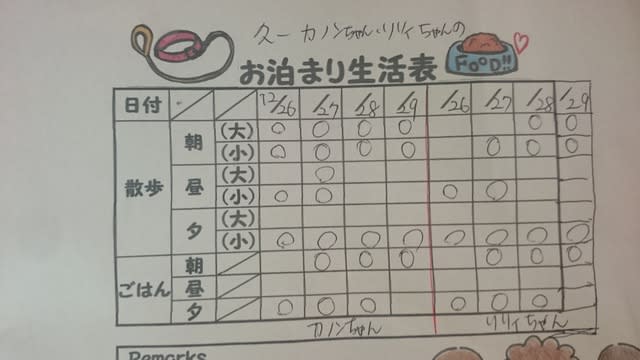 カノンちゃん・リリィちゃんの
お泊まり生活表
FOOD!!
日付 12/26 /27 /28 /29 /26 /27 /28 /29
散歩 朝 (大) ○ ○ ○ ○ ○ ○
(小) ○ ○ ○ ○ ○ ○ ○
昼 (大) ○
(小) ○ ○ ○ ○
夕 (大)
(小) ○ ○ ○ ○ ○ ○ ○ ○
ごはん 朝 ○ ○ ○ ○ ○ ○
昼
夕 ○ ○ ○ ○ ○ ○
カノンちゃん リリィちゃん
Remarks